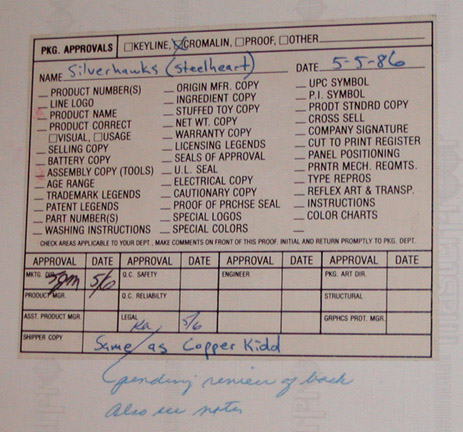 PKG. APPROVALS □KEYLINE, ☒CROMALIN, □PROOF, □OTHER
NAME Silverhawks (Steelheart) DATE 5-5-86
_ PRODUCT NUMBER(S) _ ORIGIN MFR. COPY _ UPC SYMBOL
_ LINE LOGO _ INGREDIENT COPY _ P.I. SYMBOL
_ PRODUCT NAME _ STUFFED TOY COPY _ PRODT STNDRD COPY
_ PRODUCT CORRECT _ NET WT. COPY _ CROSS SELL
□VISUAL, □USAGE _ WARRANTY COPY _ COMPANY SIGNATURE
_ SELLING COPY _ LICENSING LEGENDS _ CUT TO PRINT REGISTER
_ BATTERY COPY _ SEALS OF APPROVAL _ PANEL POSITIONING
_ ASSEMBLY COPY (TOOLS) _ U.L. SEAL _ PRNTR MECH. REQMTS.
_ AGE RANGE _ ELECTRICAL COPY _ TYPE REPROS
_ TRADEMARK LEGENDS _ CAUTIONARY COPY _ REFLEX ART & TRANSP.
_ PATENT LEGENDS _ PROOF OF PRCHSE SEAL _ INSTRUCTIONS
_ PART NUMBER(S) _ SPECIAL LOGOS _ COLOR CHARTS
_ WASHING INSTRUCTIONS _ SPECIAL COLORS _
CHECK AREAS APPLICABLE TO YOUR DEPT. MAKE COMMENTS ON FRONT OF THIS PROOF. INITIAL AND RETURN PROMPTLY TO PKG. DEPT.
APPROVAL DATE APPROVAL DATE APPROVAL DATE APPROVAL
MKTG. DIR. 5/6 Q.C. SAFETY ENGINEER PKG. ART DIR.
PRODUCT MGR. Q.C. RELIABILTY STRUCTURAL
ASST. PRODUCT MGR. LEGAL 5/6 GRPHCS PRDT. MGR.
SHIPPER COPY Same as Copper Kidd
(pending review of back
Also see notes